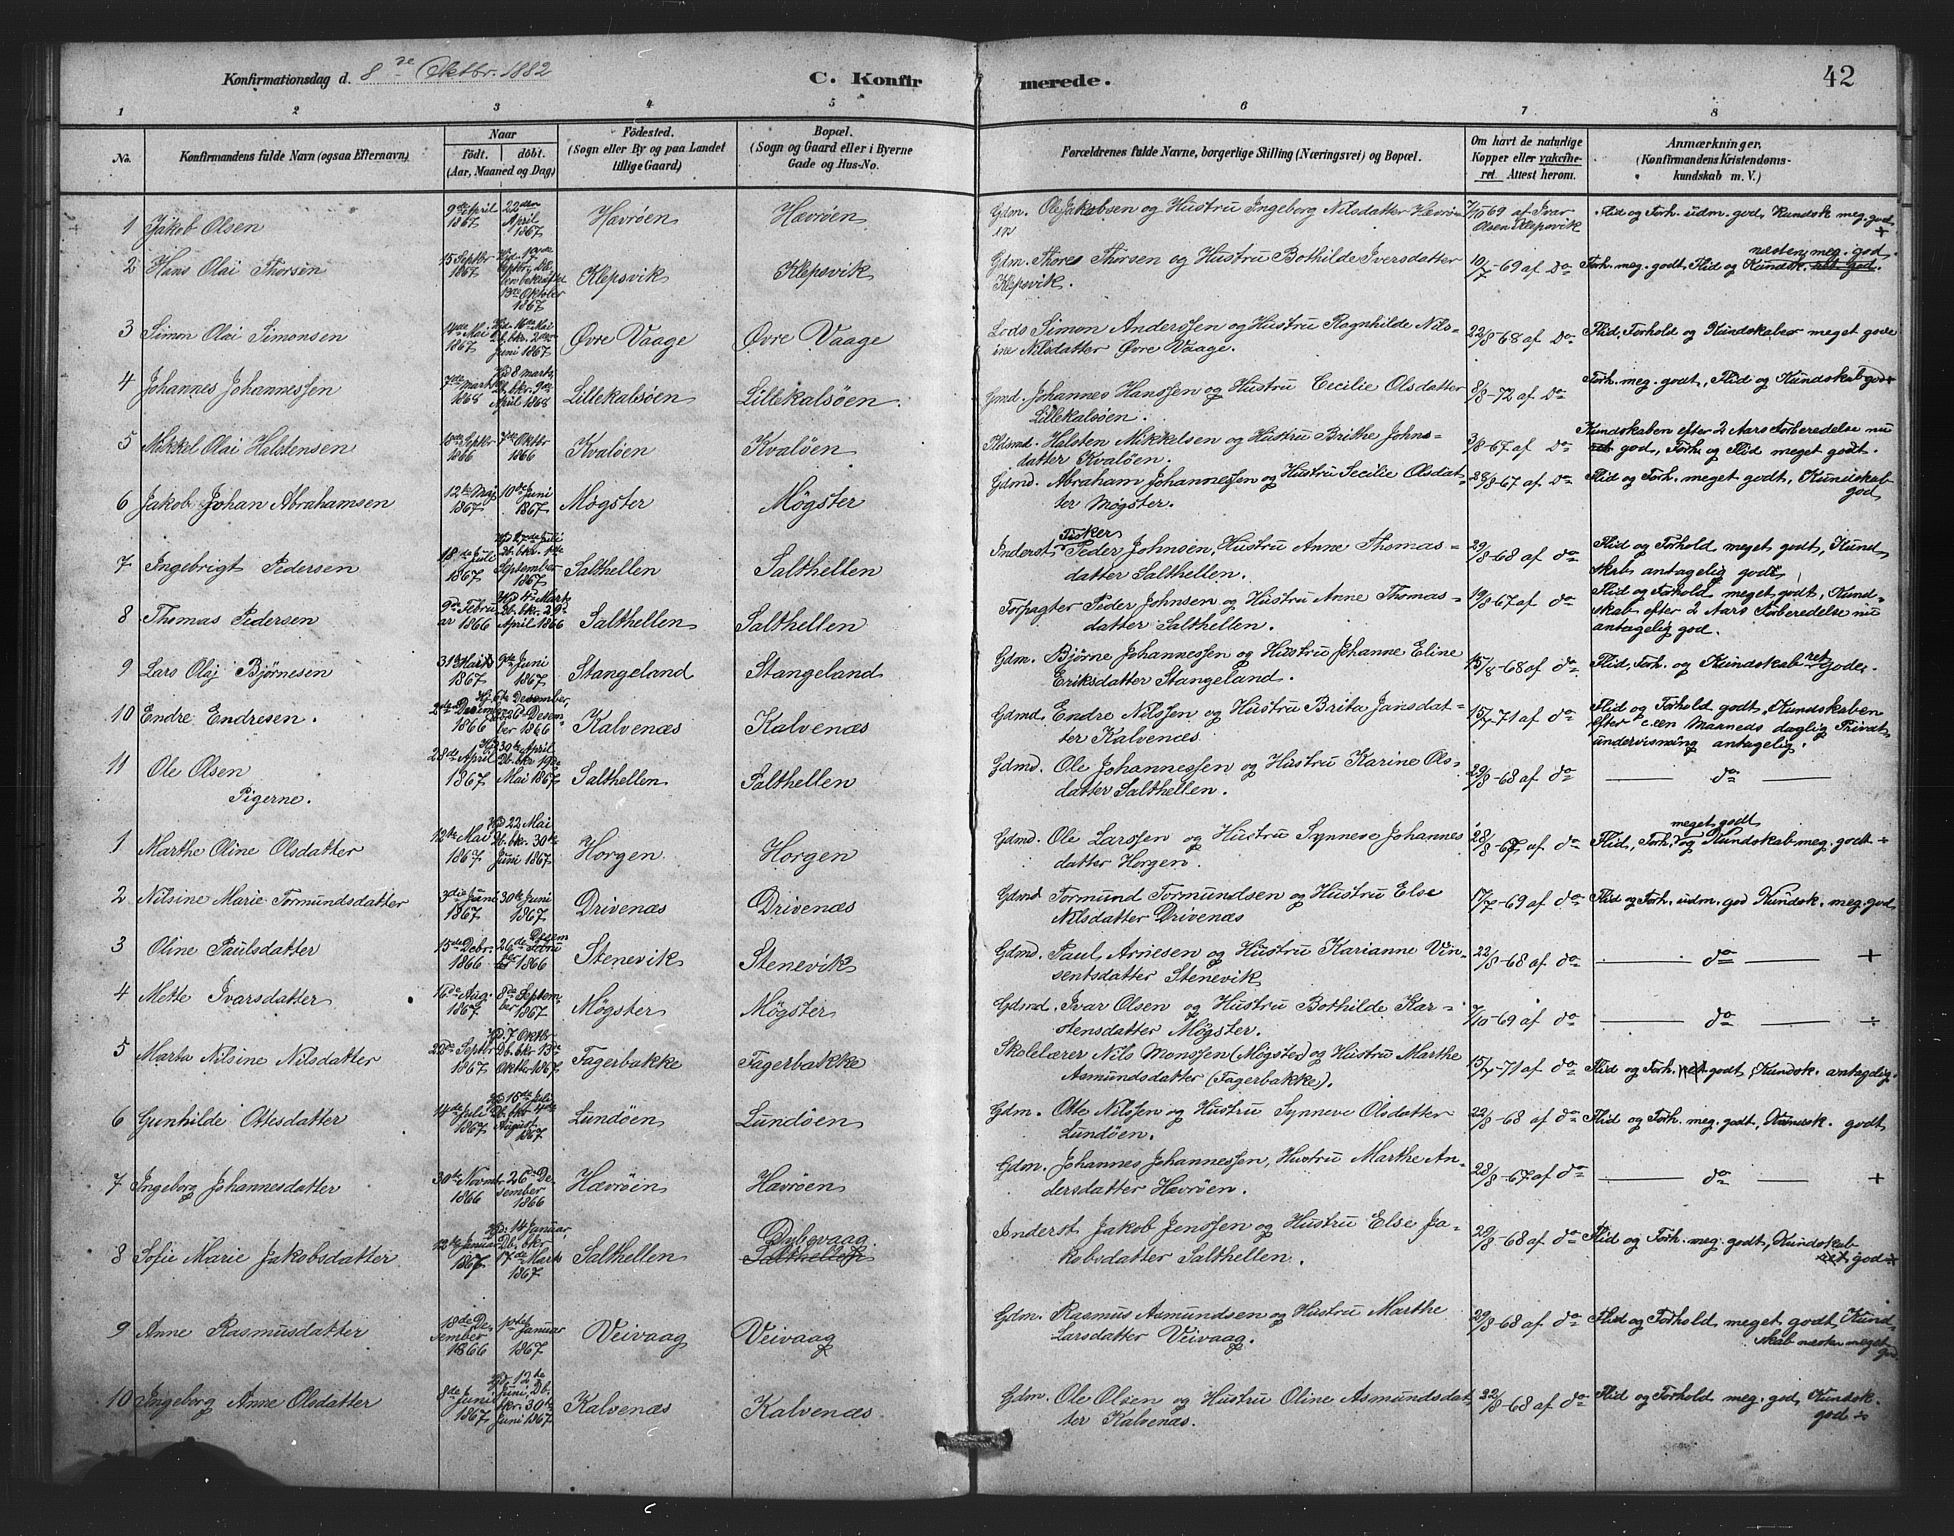 Konfirmationsdag d. 8de Oktbr. 1882
C. Konfirmerede.
42
1 2 3 4 5 6 7 8
No.
Konfirmandens fulde Navn (ogsaa Efternavn)
Naar
födt. döbt.
(Aar, Maaned og Dag)
Födested.
(Sogn eller By og paa Landet
tillige Gaard)
Bopæl.
(Sogn og Gaard eller i Byerne
Gade og Hus-No.
Forældrenes fulde Navne, borgerlige Stilling (Næringsvei) og Bopæl.
Om havt de naturlige
Kopper eller vakcine-
ret. Attest herom.
Anmærkninger.
(Konfirmandens Kristendoms-
kundskab m. V.)
1 Jakob Olsen
9de April 1867
22den April 1867
Hævröen
Hævröen
Gdm. Ole Jakobsen og Hustru Ingeborg Nilsdatter Hævrö-
en
7/10 69 af Ivar
Olsen Klepsvik
Flid og Forh. udm. god, Kundsk. meg. god
+
2 Hans Olai Thorsen
15 Septbr 1867
13de Oktober 1867
Klepsvik
Klepsvik
Gdm. Thores Thorsen og Hustru Bothilde Iversdatter
Klepsvik.
10/7-69 af Do
næsten meg. god
Forh. meg. godt, Flid og Kundsk. ret god.
3 Simon Olai Simonsen
14de Mai 1867
Hjd. 16de Mai
Db. bkr. 2den
Juni 1867
Øvre Vaage
Øvre Vaage
Lods Simon Anderssen og Hustru Ragnhilde Nils-
ine Nilsdatter Øvre Vaage.
22/8-68 af Do
Flid, Forhold og Kundskaber meget gode
4 Johannes Johannessen
7de Marts 1868
Hjd 8 marts
Db. bkr. 9de
April 1868
Lillekalsöen
Lillekalsöen.
Gmd. Johannes Hanssen og Hustru Cecilie Olsdatter
Lillekalsöen.
8/8-72 af Do
Forh. meg. godt, Flid og Kundskab god +
5 Mikkel Olai Halstensen
15de Septbr 1866
7de Oktbr 1866
Kvalöen
Kvalöen
Plsmd. Halsten Mikkelsen og Hustru Brithe Johns-
datter Kvalöen.
3/8-67 af Do
Kundskaben efter 2 Aars Forberedelse nu
ret god, Forh. og Flid meget godt.
6 Jakob Johan Abrahamsen
12te Maj 1867
10de Juni 1867
Møgster
Møgster
Gdmd. Abraham Johannessen og Hustru Secilie Olsdat-
ter Møgster.
28/8-67 af Do
Flid og Forh. meget godt, Kundskab
god
7 Ingebrigt Pedersen
18de Juli 1867
Hjd 27de Juli
Db. bkr. 1ste
September 1867
Salthellen
Salthellen
Fisker
Inderst Peder Johnsen, Hustru Anne Thomas-
datter Salthellen.
29/8-68 af do
Flid og Forhold meget godt, Kund-
skab antagelig godt
8 Thomas Pedersen
9de Febru
ar 1866
Hjd 4 Marts
Db. bkr. 29de
April 1866
Salthellen
Salthellen
Forpagter Peder Johnsen og Hustru Anne Thomas-
datter Salthellen.
19/8-67 af do
Flid og Forhold meget godt, Kund-
skab efter 2 Aars Forberedelse nu
antagelig god.
9 Lars Olaj Bjørnesen
31 Marts 1867
9de Juni 1867
Stangeland
Stangeland
Gdm. Bjørne Johannessen og Hustru Johanne Eline
Eriksdatter Stangeland.
15/8-68 af do
Flid, Forh. og Kundskab ret gode.
10 Endre Endresen.
2den Desember 1866
Hj. 6te Desember,
26 Desem-
ber 1866
Kalvenæs
Kalvenæs
Gdmd. Endre Nilssen og Hustru Brita Jansdat-
ter Kalvenæs
15/7-71 af do
Flid og Forhold godt, Kundskaben
efter c. en Maaneds daglig Privat-
undervisning antagelig.
11 Ole Olsen
28de April 1867
Hjd 30te April
Db. bkr 19de
Mai 1867
Salthellen
Salthellen
Gdmd. Ole Johannessen og Hustru Karine Ols-
datter Salthellen.
29/8-68 af do
do
Pigerne.
1 Marthe Oline Olsdatter
12te Mai 1867
Hjd 22 Mai
Db. bkr. 30te
Juni 1867
Horgen
Horgen
Gdmd. Ole Larssen og Hustru Synneve Johannes
datter Horgen.
28/8-67 af do
meget godt
Flid, Forh. og Kundskab meg. godt +
2 Nilsine Marie Tormundsdatter
3die Juni 1867
30te Juni 1867
Drivenæs
Drivenæs
Gdmd Tormund Tormundsen og Hustru Else
Nilsdatter Drivenæs
17/7-69 af do
Flid og Forh. udm. god Kundsk. meg. god
3 Oline Paulsdatter
15de Debr. 1866
26de Desem
ber 1866
Stenevik
Stenevik
Gdmd. Paul Arnesen og Hustru Karianne Vin-
sentsdatter Stenevik
22/8-68 af do
do +
4 Mette Ivarsdatter
16de Aug. 1867
8de Septem-
ber 1867
Møgster
Møgster
Gdmd. Ivar Olsen og Hustru Bothilde Kar-
stensdatter Møgster.
7/10-69 af do
do ÷
5 Marta Nilsine Nilsdatter
22de Septbr 1867
Hjd. 7 Oktbr
Db. bkr 13de
Oktbr 1867
Fagerbakke
Fagerbakke
Skolelærer Nils Monssen (Møgster) og Hustru Marthe
Asmundsdatter (Fagerbakke).
15/7-71 af do
Flid og Forh. ret godt, Kundsk. antagelig.
6 Gunhilde Ottesdatter
14de Juli 1867
Hjd 15de Juli
Db. bkr 4de
August 1867
Lundöen
Lundöen
Gdm. Otte Nilssen og Hustru Synneve Olsdatter
Lundöen.
22/8-68 af do
Flid og Forh. meg. godt, Kundsk. godt
7 Ingeborg Johannesdatter
30te Novmbr 1866
26de De-
sember 1866
Hævröen
Hævröen
Gdm. Johannes Johannessen, Hustru Marthe An-
dersdatter Hævröen.
28/8-67 af do
do +
8 Sofie Marie Jakobsdatter
12te Januar 1867
Hjd. 14 Januar,
Db. bkr
17de Marts
1867
Salthellen
Dybevaag.
Salthellen
Inderst Jakob Jenssen og Hustru Else Ja-
kobsdatter Salthellen.
29/8-68 af do
Flid og Forh. meg. godt, Kundskab
ret god +
9 Anne Rasmusdatter
18de De-
sember 1866
1ste Januar 1867
Veivaag
Veivaag
Gdm. Rasmus Asmundsen og Hustru Marthe
Larsdatter Veivaag.
29/8-68 af do
Flid og Forhold meget godt, Kund-
skab næsten meget
god
10 Ingeborg Anne Olsdatter
8de Juni 1867
Hjd. 12te
Juni, Db.
bkr. 30te
Juni 1867
Kalvenæs
Kalvenæs.
Gdm. Ole Olsen og Hustru Oline Asmundsdat-
ter Kalvenæs.
22/8-68 af do
Flid og Forhold meg. god, Kundsk.
god ÷